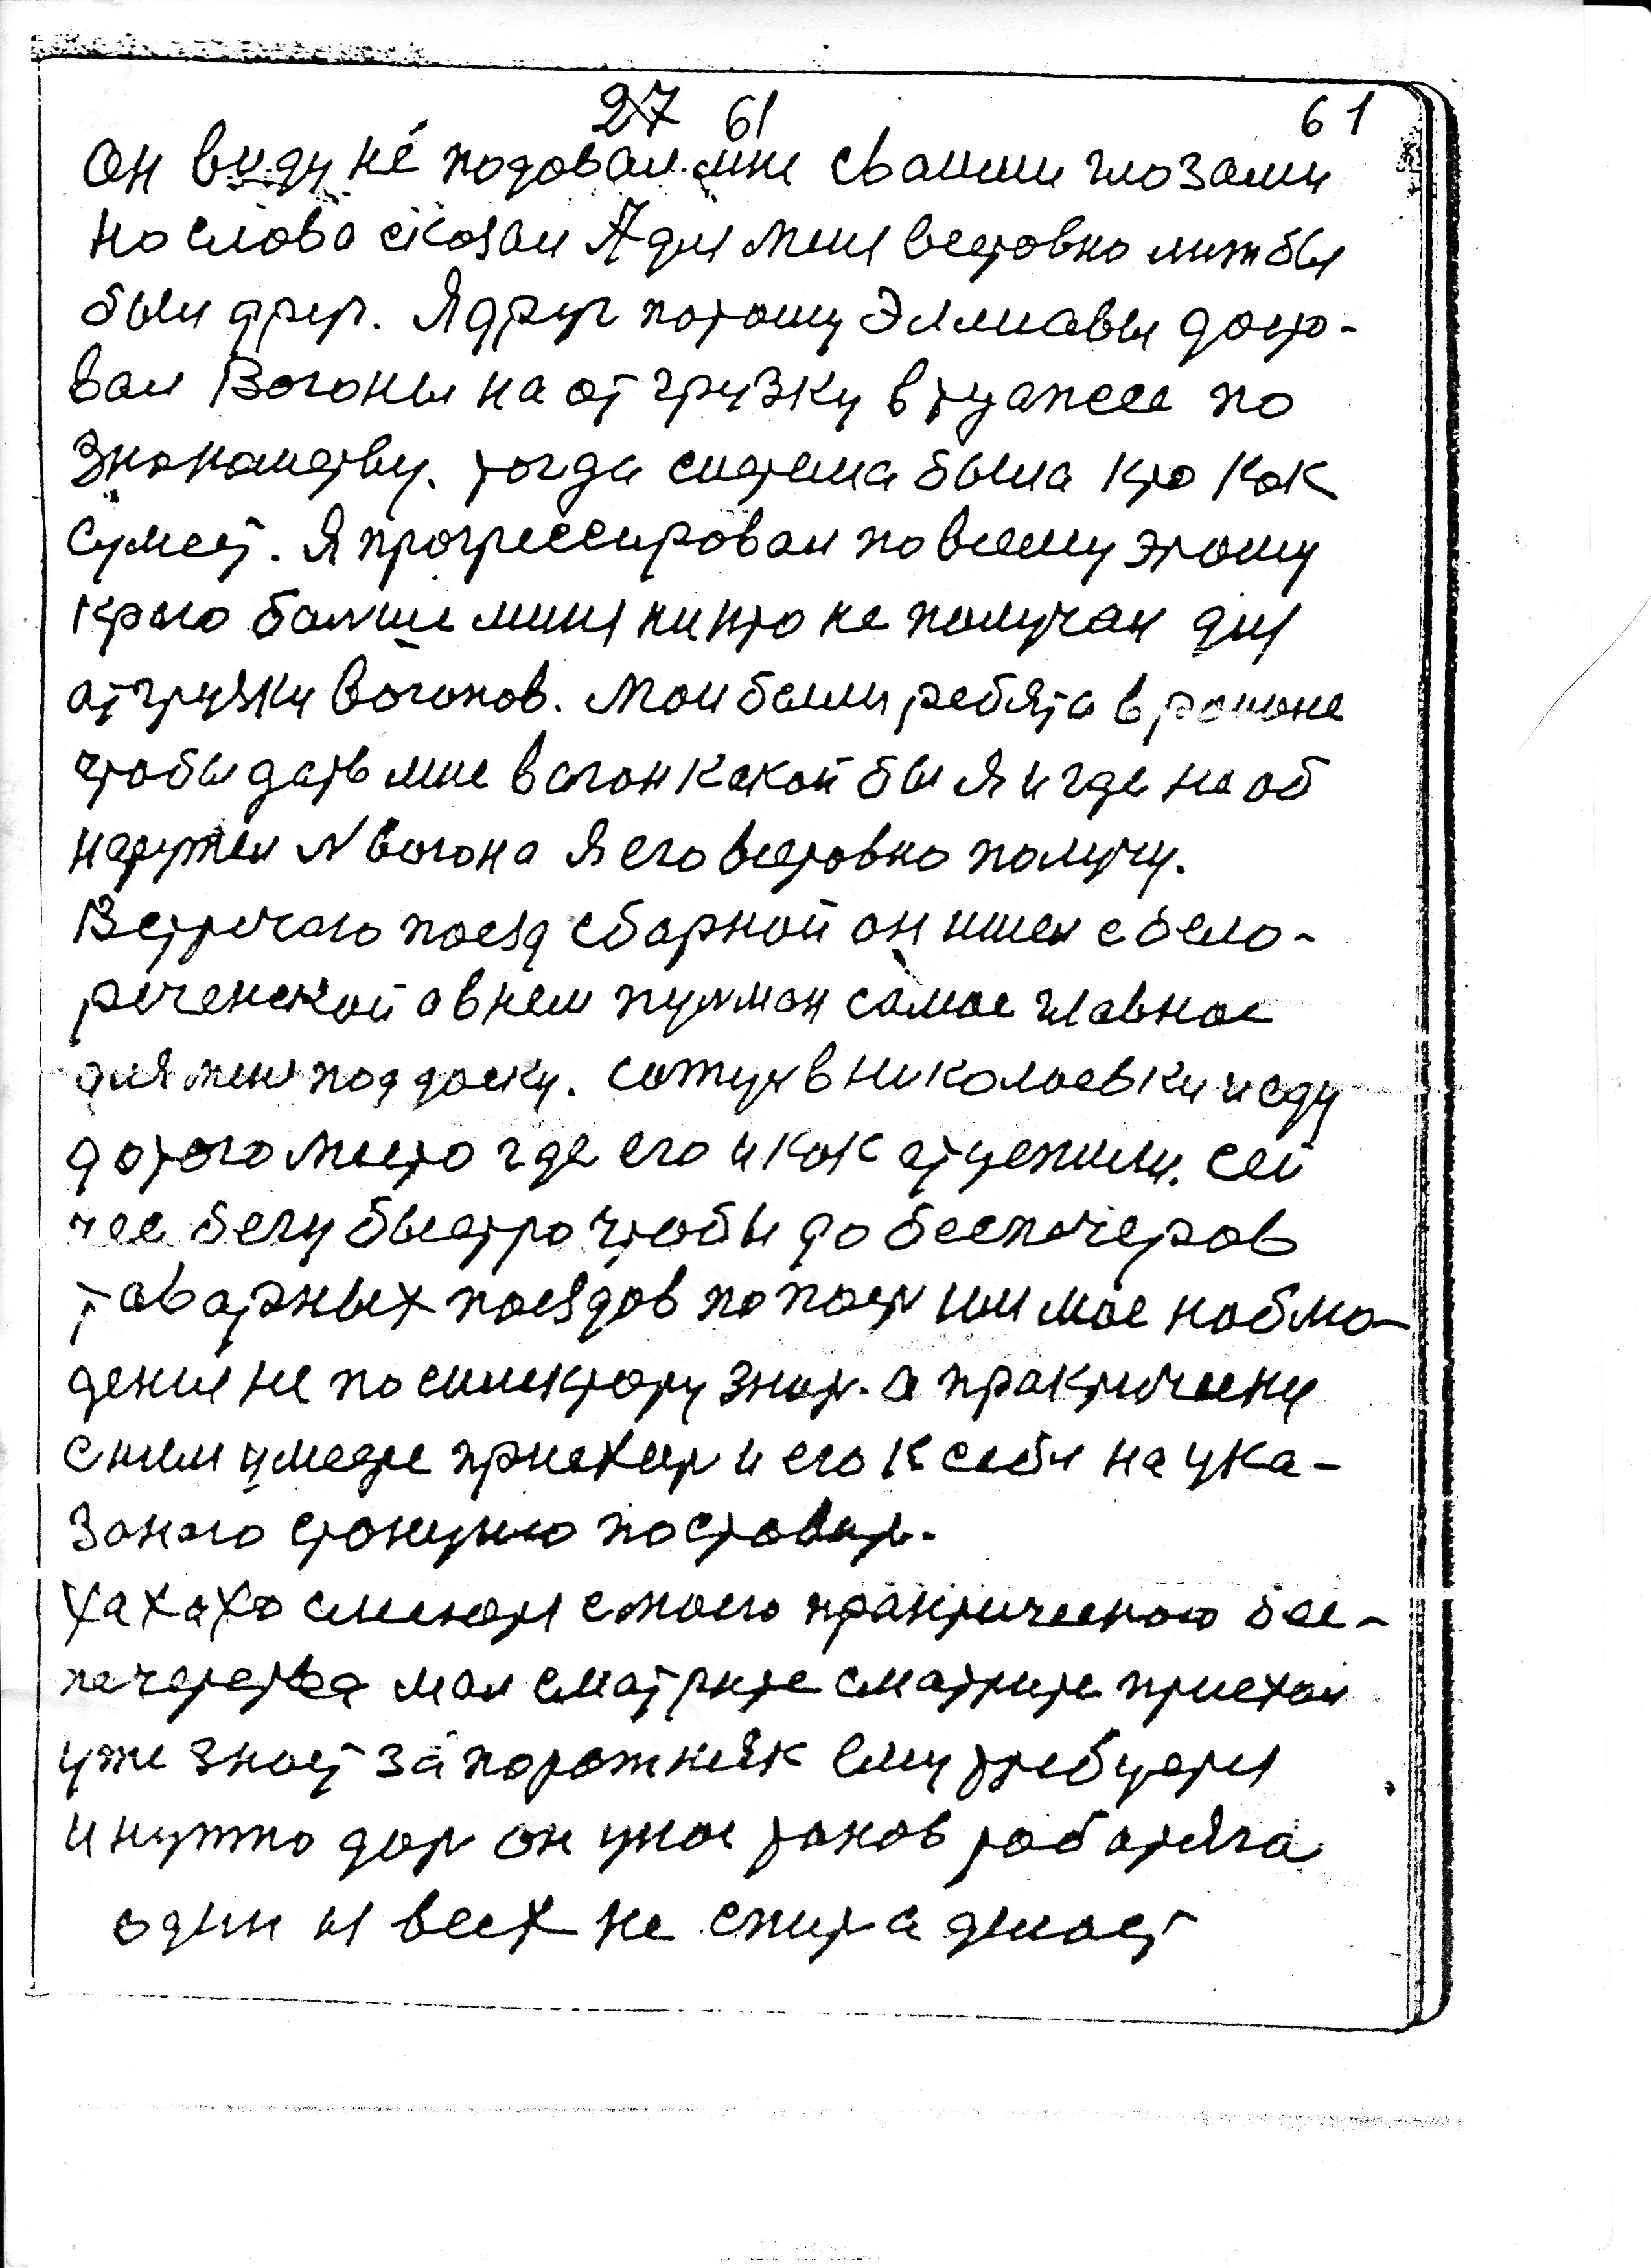 27 61 61
Он виду не подовал мне сваими глозами
но слова скозал А для меня всетовно лиж бы
был друг. Я друг потому Эллиавы досто-
вал Вогоны на отгрузку в туапсе по
Знокомству. тогда система была кто кок
сумеет. Я прогрессировал по всему этому
краю болше миня никто не получал для
отгрузки вогонов. Мои были ребята в районе
чтобы дать мне вогон какой бы я и где не об
наружил N вогона Я его всетовно получу.
Встречаю поезд сборной он ишел с бело-
реченской а в нем пулман самое главное
для меня под доску. сажуся в николаевки и еду
до того место где его и как отцепили. сей
час бегу быстро чтобы до беспечеров
товарных поездов попасть или мое наблю-
дения не по силектору знать. а практичени
с ним умеете приехать и его к себе на ука-
заного станцию поставить.
Хахахо смеются с моего практичиного бес-
печерства мол сматрите сматрите приехал
уже знает за порожняк ему требуется
и нужно дать он уже таков работяга
один из всех не спит а делает